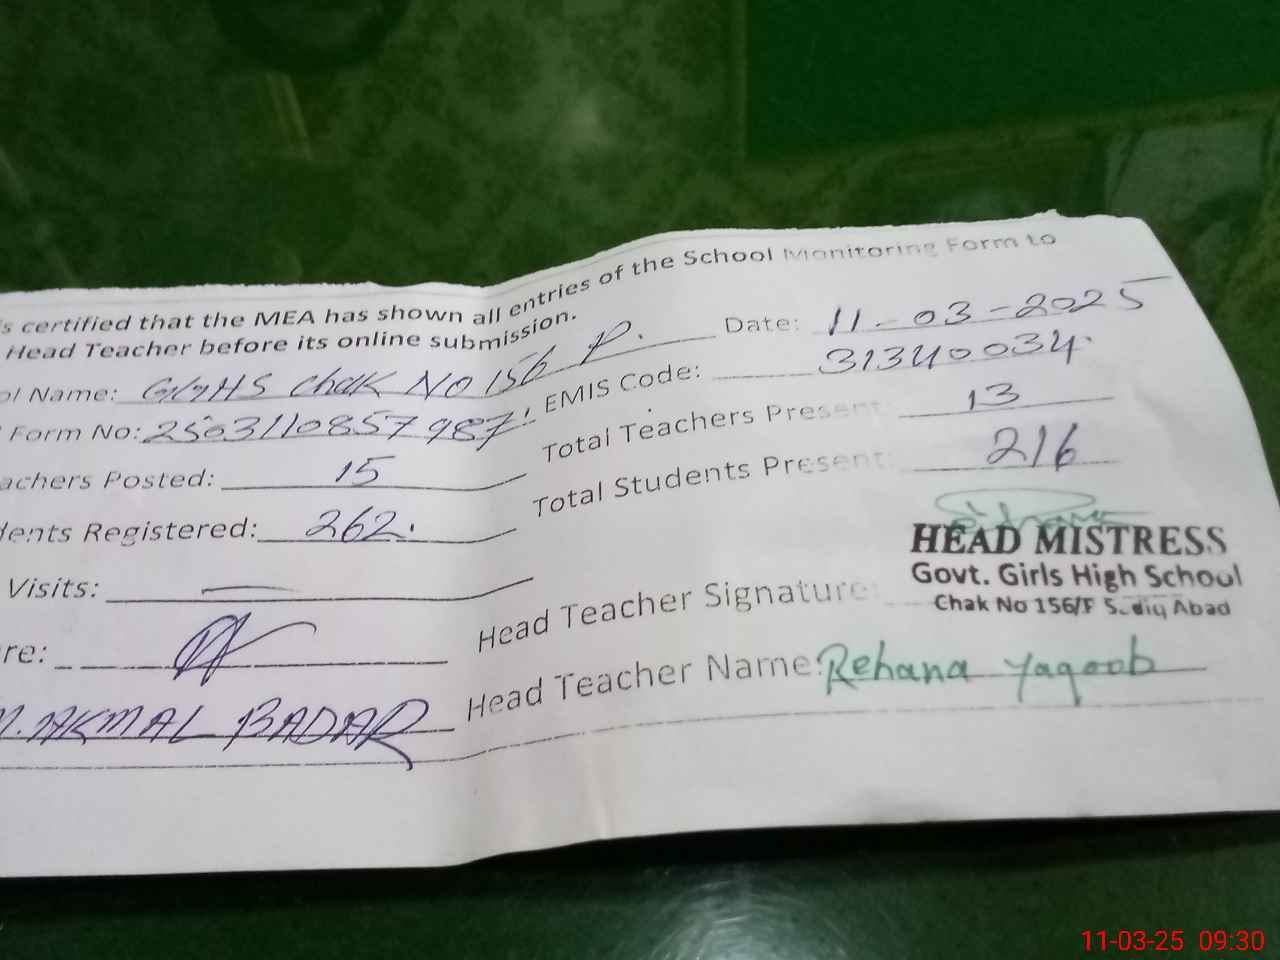 is certified that the MEA has shown all entries of the School Monitoring Form to
Head Teacher before its online submission.
Date: 11-03-2025
ol Name: GGHS Chak NO 156 P.
EMIS Code: 31340034
Form No: 2503110857987
Total Teachers Present: 13
achers Posted: 15
Total Students Present: 216
dents Registered: 262.
Visits: —
Head Teacher Signature:
HEAD MISTRESS
Govt. Girls High School
Chak No 156/F Sadiq Abad
re:
Head Teacher Name: Rehana Yaqoob
M. AKMAL BADAR
11-03-25 09:30